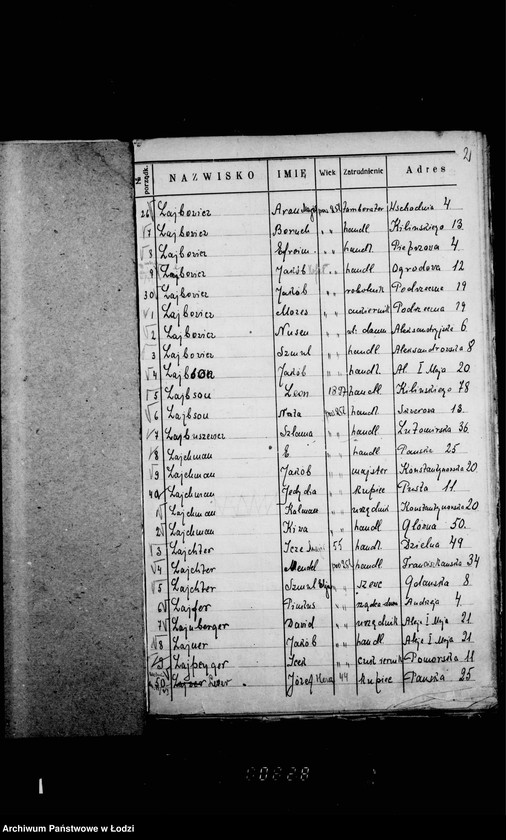 21
№ porządk. NAZWISKO IMIĘ Wiek Zatrudnienie Adres
26 Lajbowicz Aron Wschodnia 4
7 Lajbowicz Boruch " " handl Kilińskiego 13
8 Lajbowicz Efroim " " handl. Pieprzowa 4
9 Lajbowicz Jakób " " handl Ogrodowa 12
30 Lajbowicz Jakób " " robotnik Podrzeczna 19
1 Lajbowicz Mozes " " cukiernik Podrzeczna 19
2 Lajbowicz Nusen " " wł. domu 6
3 Lajbowicz Szmul " " handl Aleksandrowska 8
4 Lajbson Jakób " " handl. Al. I Maja 20
5 Lajbson Leon 1897 handl Kilińskiego 78
6 Lajbson Nata handl. 13
7 Szlama " " handl Lutomirska 36
8 Lajchman E " " handl Pańska 25
9 Lajchman Jakób " " majster Konstantynowska 20
40 Lajchman Jedydia " " kupiec Pusta 11
1 Lajchman Kalman " " urzędnik Konstantynowska 20
2 Lajchman Kiwa " " handl Główna 50.
3 Lajchter Icze 55 handl. Dzielna 49
4 Lajchter Mendel handl Franciszkańska 34
5 Lajchter Szmul " szewc Gdańska 8.
6 Lajfer Pinkus " " rządca domu Andrzeja 4.
7 Lajnberger Dawid " " urzędnik Aleje I Maja 21
8 Lajner Jakób " " handl Aleje I Maja 21
9 Icek " " cukiernik Pomorska 11
50 Józef 44 kupiec Pańska 25
00828
Archiwum Państwowe w Łodzi